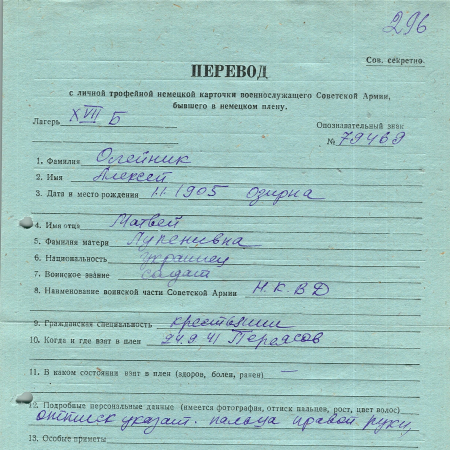 296
Сов. секретно.
ПЕРЕВОД
с личной трофейной немецкой карточки военнослужащего Советской Армии,
бывшего в немецком плену.
Лагерь XVII Б
Опознавательный знак
№ 79469
1. Фамилия Олейник
2. Имя Алексей
3. Дата и место рождения 11. 1905 Озирна
4. Имя отца Матвей
5. Фамилия матери
6. Национальность Украинец
7. Воинское звание солдат
8. Наименование воинской части Советской Армии Н.К.ВД
9. Гражданская специальность крестьянин
10. Когда и где взят в плен 24 9 41
11. В каком состоянии взят в плен (здоров, болен, ранен) —
12. Подробные персональные данные (имеется фотография, оттиск пальцев, рост, цвет волос)
оттиск указат. пальца правой руки,
13. Особые приметы